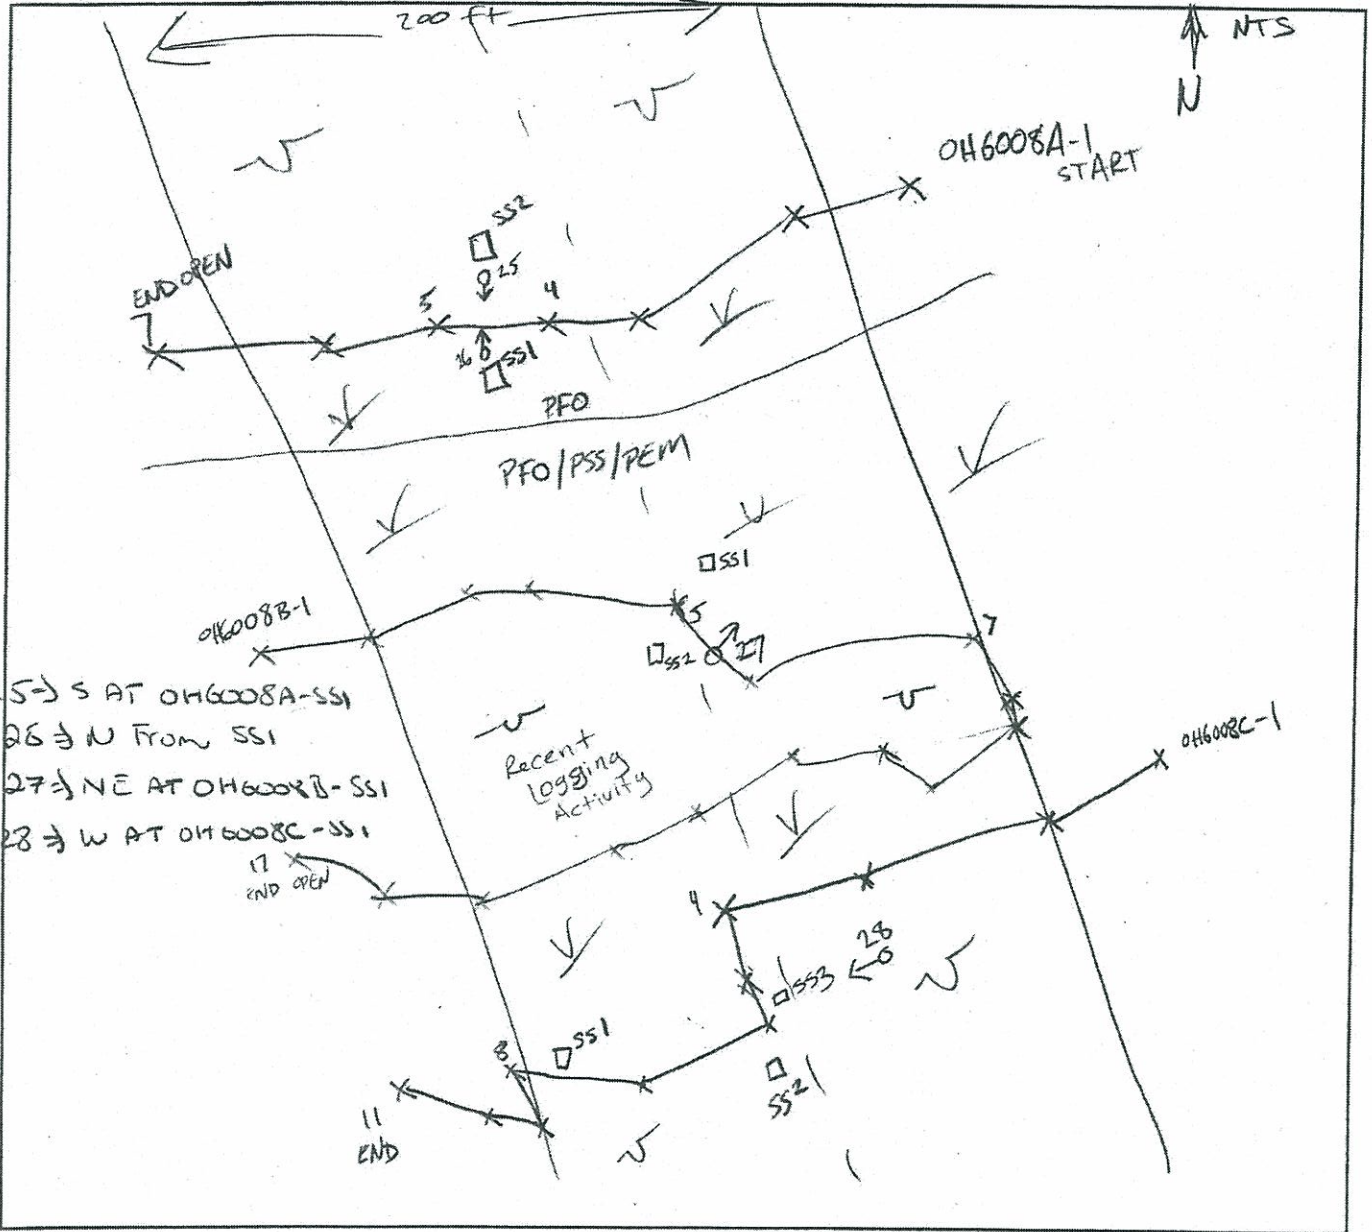 200 ft
NTS
N
OH6008A-1
START
SS2
END OPEN
7
25
5
4
26
SS1
PFO
PFO/PSS/PEM
SS1
OH6008B-1
5
7
SS2
27
5→ S AT OH6008A-SS1
26→ N From SS1
27→ NE AT OH6008B-SS1
28→ W AT OH6008C-SS1
Recent
Logging
Activity
OH6008C-1
17
END OPEN
4
28
SS3
SS1
8
SS2
11
END